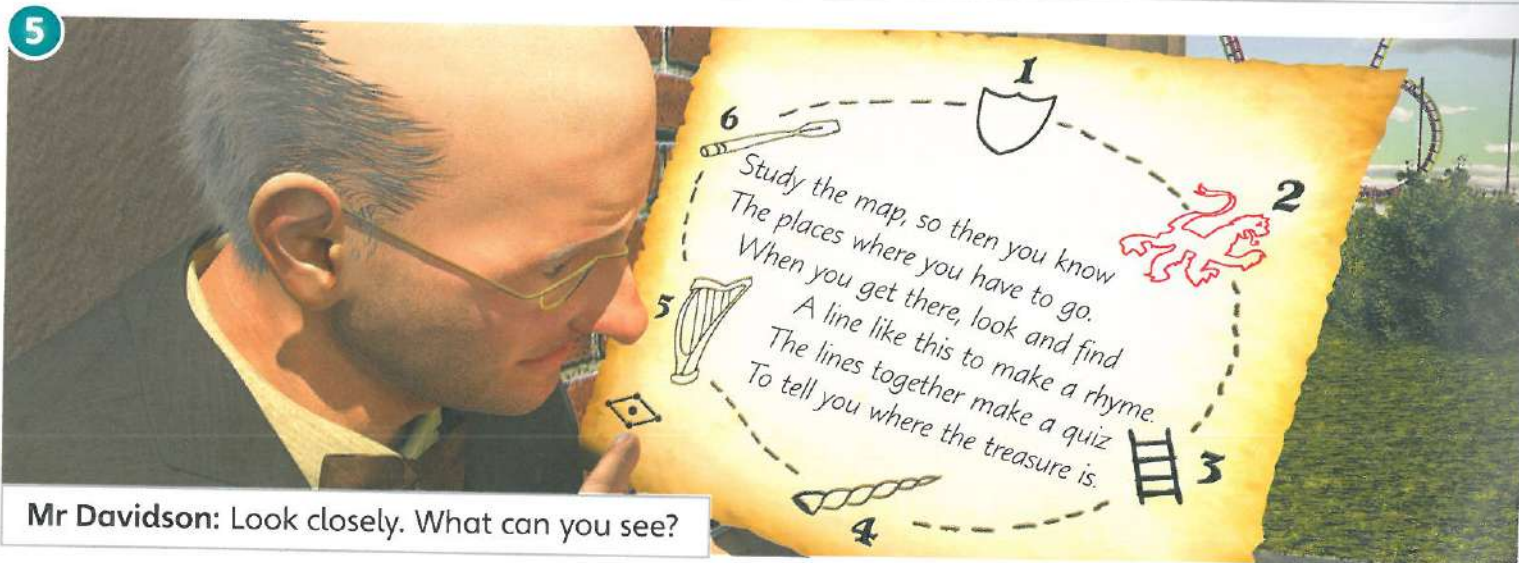 5
1
6
2
Study the map, so then you know
The places where you have to go.
When you get there, look and find
A line like this to make a rhyme.
The lines together make a quiz
To tell you where the treasure is.
5
3
4
Mr Davidson: Look closely. What can you see?